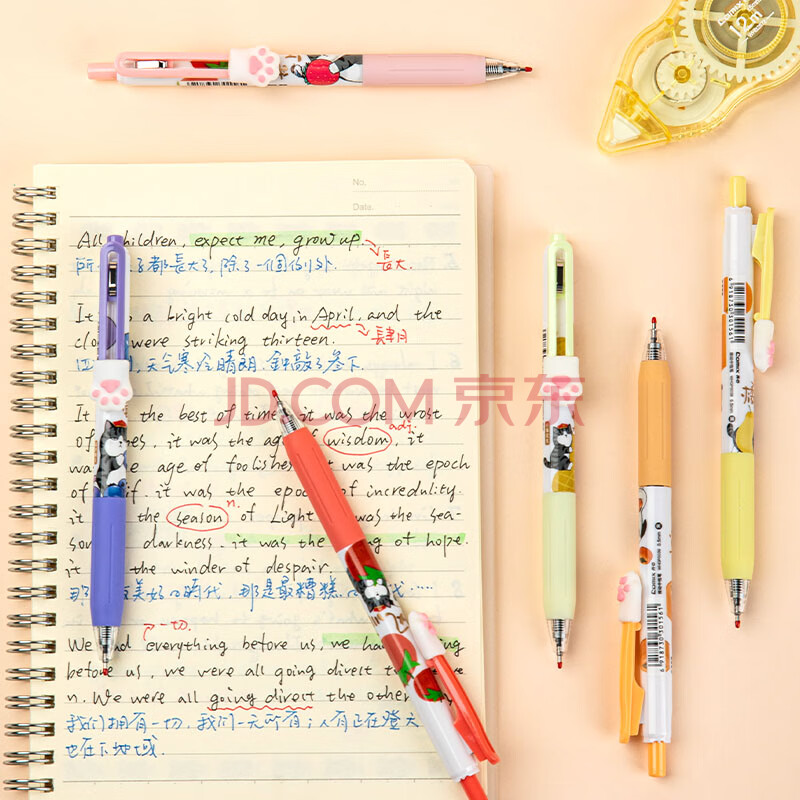 No.
Date.
All children, expect me, grow up.
長大.
所 了都長大了, 除了一個例外.
It a bright cold day in April, and the
clo were striking thirteen.
天气寒冷晴朗, 钟敲了叁下.
JD.COM 京东
It the best of time, it was the wrost
adj.
of es, it was the age of wisdom, it
wa e age of foolishes was the epoch
of if, it was the epoc of incredulity.
n
it the season of Light was the sea-
son darkness, it was the ng of hope.
it the winder of despair.
那 美好の時代, 那是最糟糕 代....
一切.
We had everything before us, we ha
before us, we were all going direct t ve
n. We were all going direct the other
我们拥有一切, 我们一无所有; 人有正在登天
也在下地域.
12m
Comix 齐心
0.5mm
6918730501561
Comix 齐心
0.5mm
6918730501561